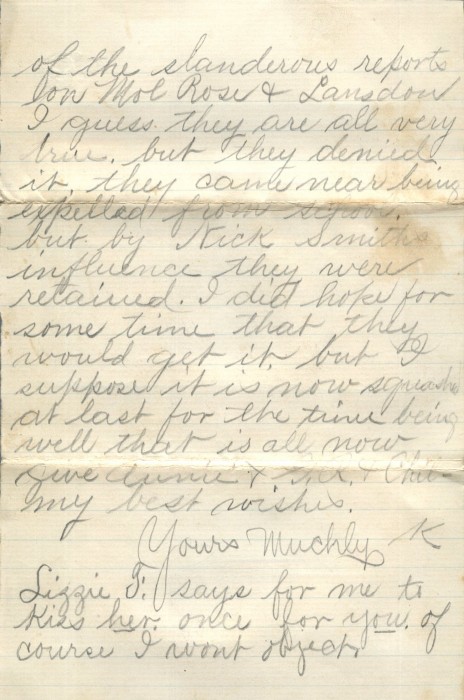 of the slanderous reports
on Mol Rose & Lansdon
I guess they are all very
true, but they denied
it, they came near being
expelled from school,
but by Nick Smiths
influence they were
retained. I did hope for
some time that they
would get it, but I
suppose it is now squashed
at last for the time being
well that is all now
give Auntie &
my best wishes.
Yours Muchly K
Lizzie F. says for me to
kiss her once for you. of
course I wont object.